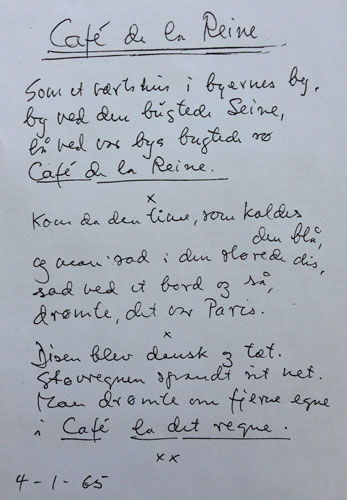 Café de la Reine
Som et værtshus i byernes by,
by ved den bugtede Seine,
lå ved vor bys bugtede
Café de la Reine.
x
Kom da den time, som kaldes
den blå,
og man sad i den slørede dis,
sad ved et bord og så,
drømte, det var Paris.
x
Disen blev dansk og tæt.
Støvregnen spandt sit net.
Man drømte om fjerne egne
i Café la det regne.
xx
4-1-65